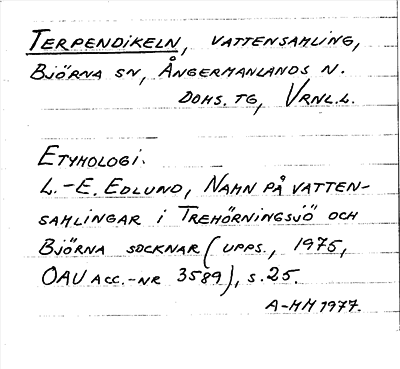 TERPENDIKELN, VATTENSAMLING,
BJÖRNA SN, ÅNGERMANLANDS N.
DOMS. TG, VRNL.L.
ETYMOLOGI.
L.-E. EDLUND, NAMN PÅ VATTEN-
SAMLINGAR I TREHÖRNINGSJÖ OCH
BJÖRNA SOCKNAR (UPPS., 1975,
OAU ACC.-NR 3589), S.25.
A-MM 1977.